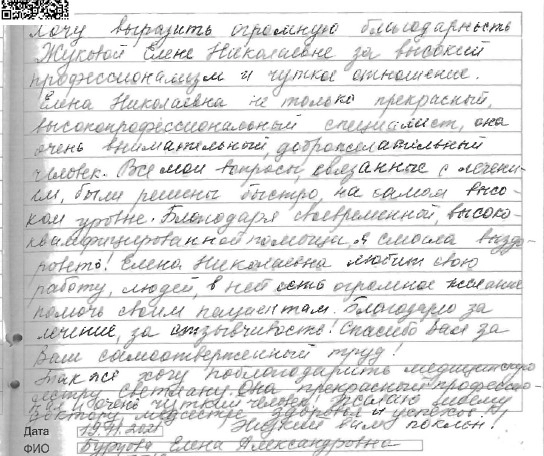 Хочу выразить огромную благодарность
Жуковой Елене Николаевне за высокий
профессионализм и чуткое отношение.
Елена Николаевна не только прекрасный,
высокопрофессиональный специалист, она
очень внимательный, доброжелательный
человек. Все мои вопросы, связанные с лечени-
ем, были решены быстро, на самом высо-
ком уровне. Благодаря своевременной, высоко-
квалифицированной помощи, я смогла выздо-
роветь! Елена Николаевна любит свою
работу, людей, в ней есть огромное желание
помочь своим пациентам. Благодарю за
лечение, за отзывчивость! Спасибо вам за
Ваш самоотверженный труд!
Также хочу поблагодарить медицинскую
сестру Светлану. Она прекрасный профессио-
нал и очень чуткий человек! Желаю моему
доктору и медсестре здоровья и успехов!
Дата 2021 Низкий вам поклон!
ФИО Елена Александровна